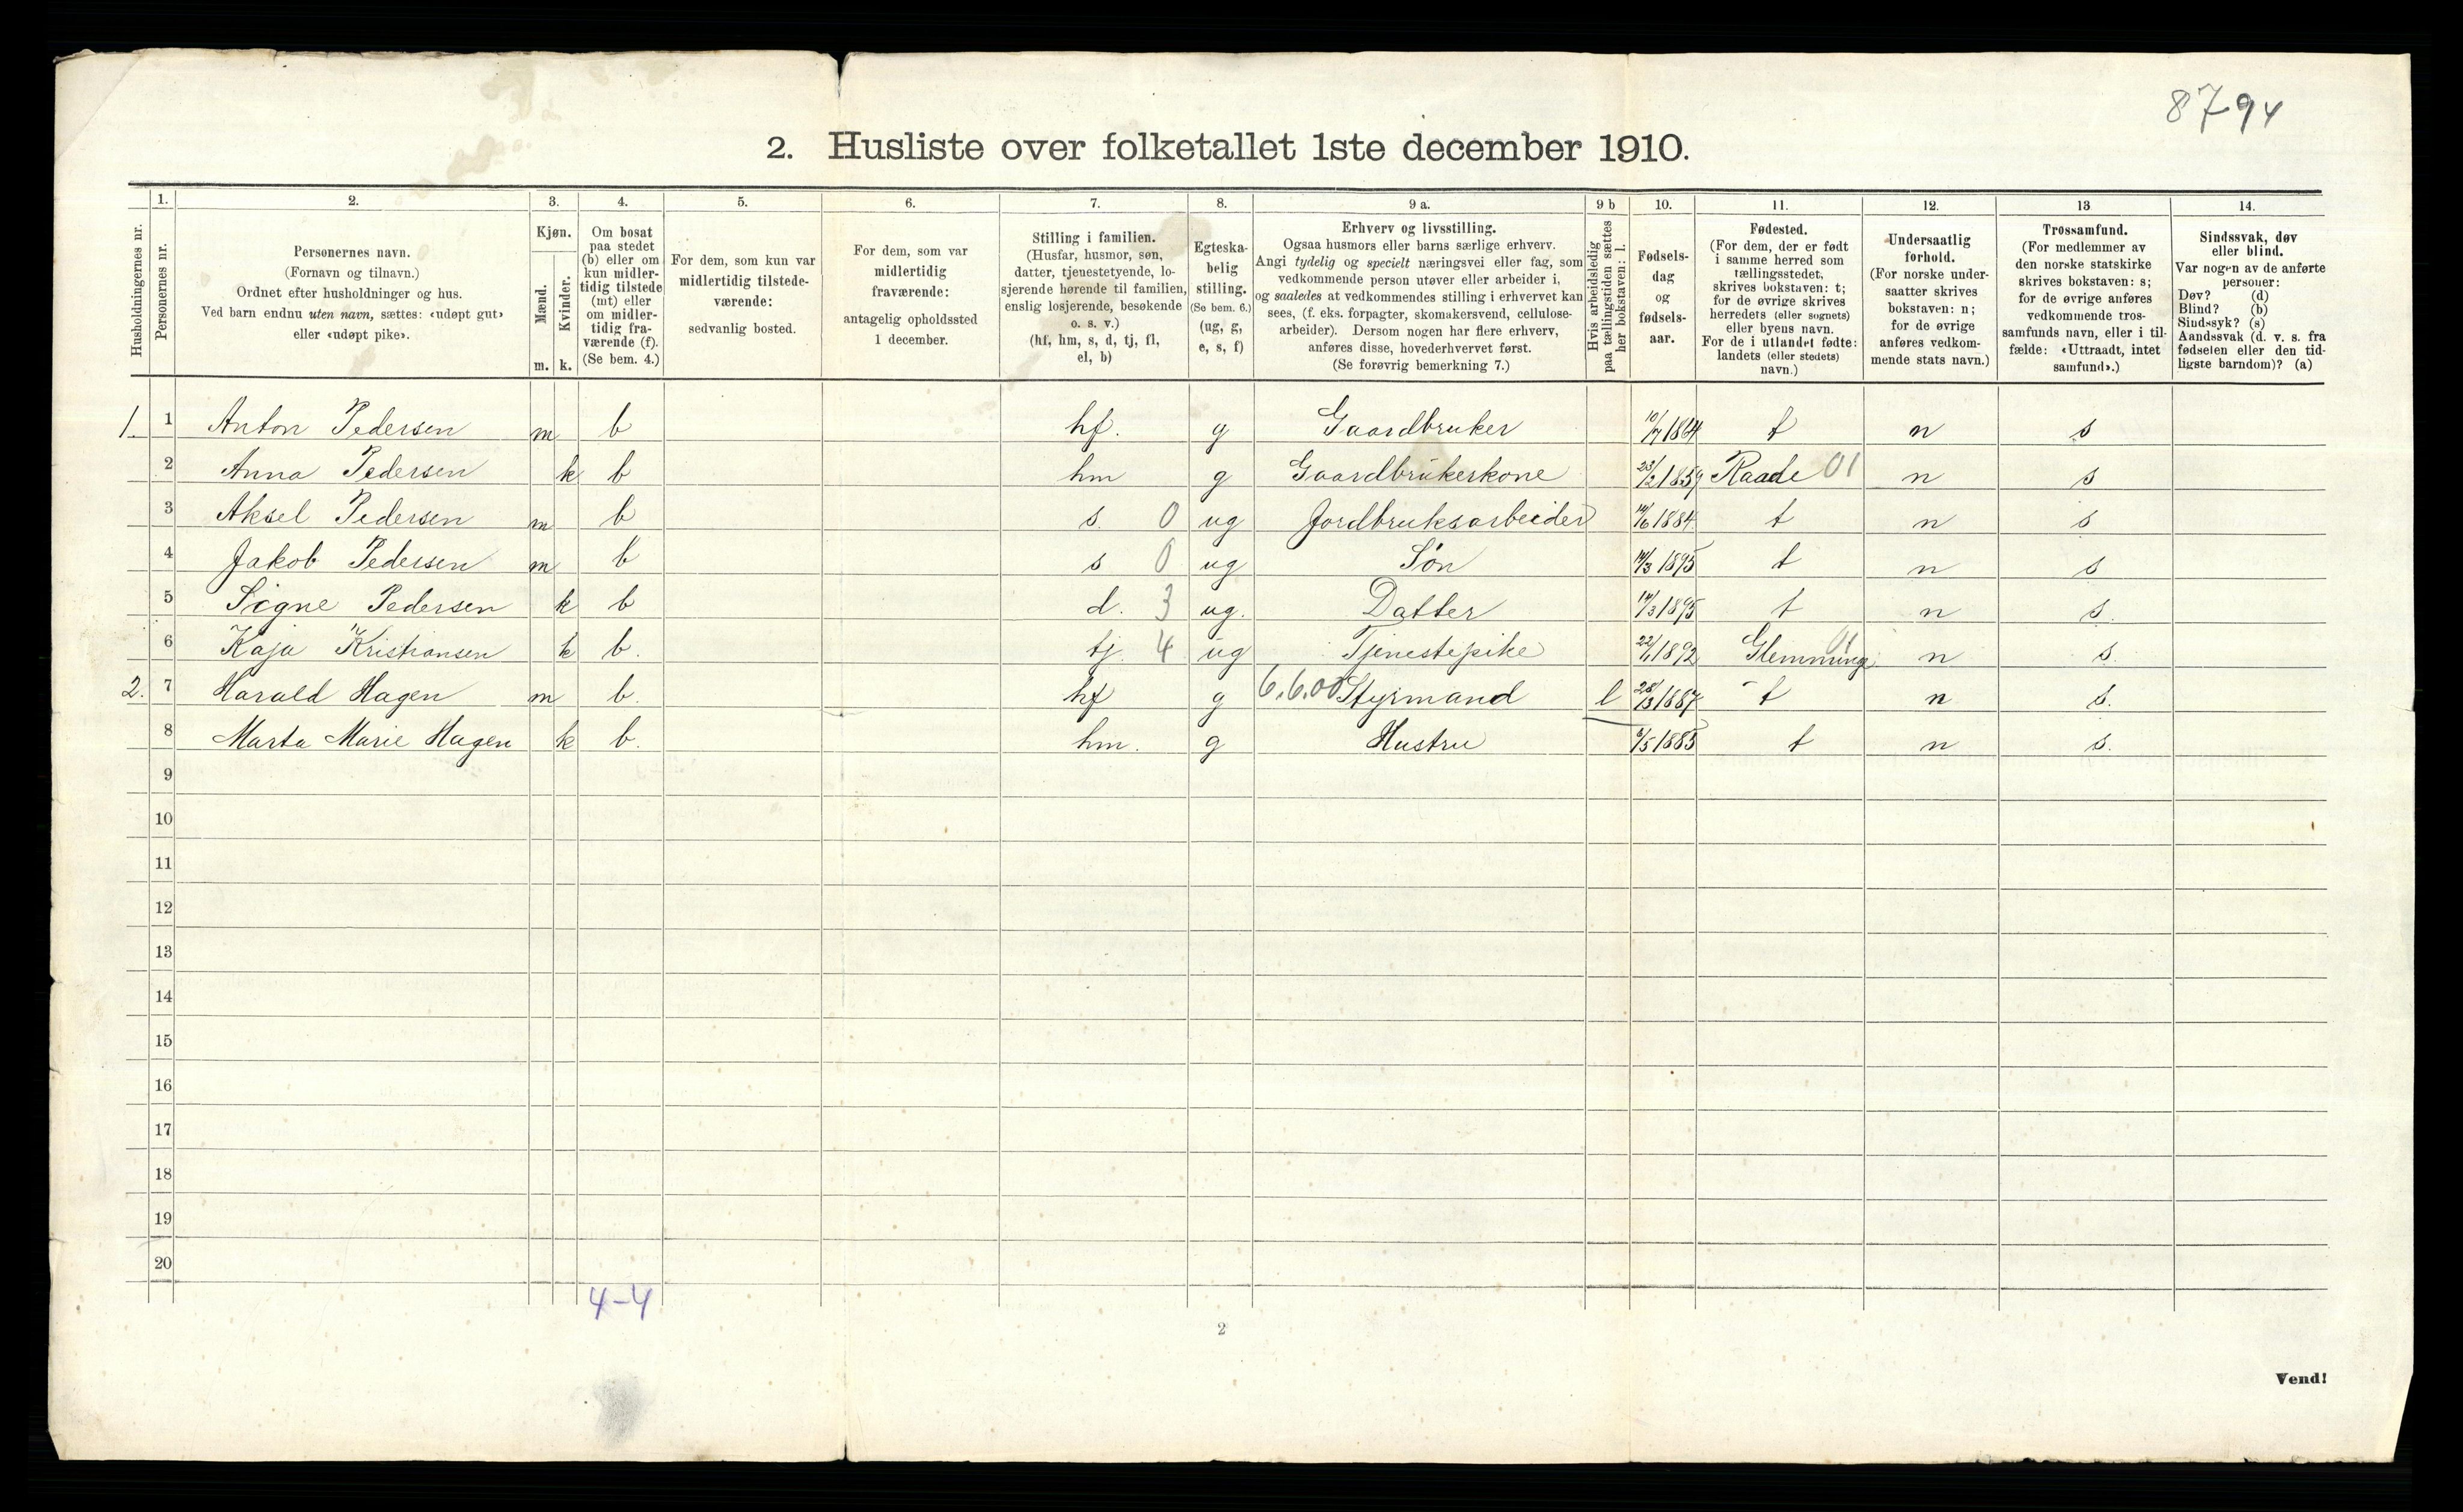 8794
2. Husliste over folketallet 1ste december 1910.
Husholdningernes nr.
1.
Personernes nr.
2.
Personernes navn.
(Fornavn og tilnavn.)
Ordnet efter husholdninger og hus.
Ved barn endnu uten navn, sættes: «udøpt gut»
eller «udøpt pike».
3.
Kjøn.
Mænd.
Kvinder.
m. k.
4.
Om bosat
paa stedet
(b) eller om
kun midler-
tidig tilstede
(mt) eller
om midler-
tidig fra-
værende (f).
(Se bem. 4.)
5.
For dem, som kun var
midlertidig tilstede-
værende:
sedvanlig bosted.
6.
For dem, som var
midlertidig
fraværende:
antagelig opholdssted
1 december.
7.
Stilling i familien.
(Husfar, husmor, søn,
datter, tjenestetyende, lo-
sjerende hørende til familien,
enslig losjerende, besøkende
o. s. v.)
(hf, hm, s, d, tj, fl,
el, b)
8.
Egteska-
belig
stilling.
(Se bem. 6.)
(ug, g,
e, s, f)
9 a.
Erhverv og livsstilling.
Ogsaa husmors eller barns særlige erhverv.
Angi tydelig og specielt næringsvei eller fag, som
vedkommende person utøver eller arbeider i,
og saaledes at vedkommendes stilling i erhvervet kan
sees, (f. eks. forpagter, skomakersvend, cellulose-
arbeider). Dersom nogen har flere erhverv,
anføres disse, hovederhvervet først.
(Se forøvrig bemerkning 7.)
9 b
Hvis arbeidsledig
paa tællingstiden sættes
her bokstaven: l.
10.
Fødsels-
dag
og
fødsels-
aar.
11.
Fødested.
(For dem, der er født
i samme herred som
tællingsstedet,
skrives bokstaven: t;
for de øvrige skrives
herredets (eller sognets)
eller byens navn.
For de i utlandet fødte:
landets (eller stedets)
navn.)
12.
Undersaatlig
forhold.
(For norske under-
saatter skrives
bokstaven: n;
for de øvrige
anføres vedkom-
mende stats navn.)
13
Trossamfund.
(For medlemmer av
den norske statskirke
skrives bokstaven: s;
for de øvrige anføres
vedkommende tros-
samfunds navn, eller i til-
fælde: «Uttraadt, intet
samfund».)
14.
Sindssvak, døv
eller blind.
Var nogen av de anførte
personer:
Døv? (d)
Blind? (b)
Sindssyk? (s)
Aandssvak (d. v. s. fra
fødselen eller den tid-
ligste barndom)? (a)
1. 1 Anton Pedersen m b hf. g Gaardbruker 10/7 1864 t n s
2 Anna Pedersen k b hm g Gaardbrukerkone 23/2 1859 Raade 01 n s
3 Aksel Pedersen m b s. 0 ug Jordbruksarbeider 14/6 1884. t n s
4 Jakob Pedersen m b s 0 ug Søn 14/3 1895 t n s
5 Signe Pedersen k b d. 3 ug. Datter 14/3 1895 t n s.
6 Kaja Kristiansen k b. tj. 4 ug Tjenestepike 1892 Glemminge 01 n s.
2. 7 Harald Hagen m b. hf g 6.6.00 Styrmand l 28/3 1887 t n s.
8 Marta Marie Hagen k b. hm. g Hustru 1885 t n s.
9
10
11
12
13
14
15
16
17
18
19
20
4-4
2
Vend!